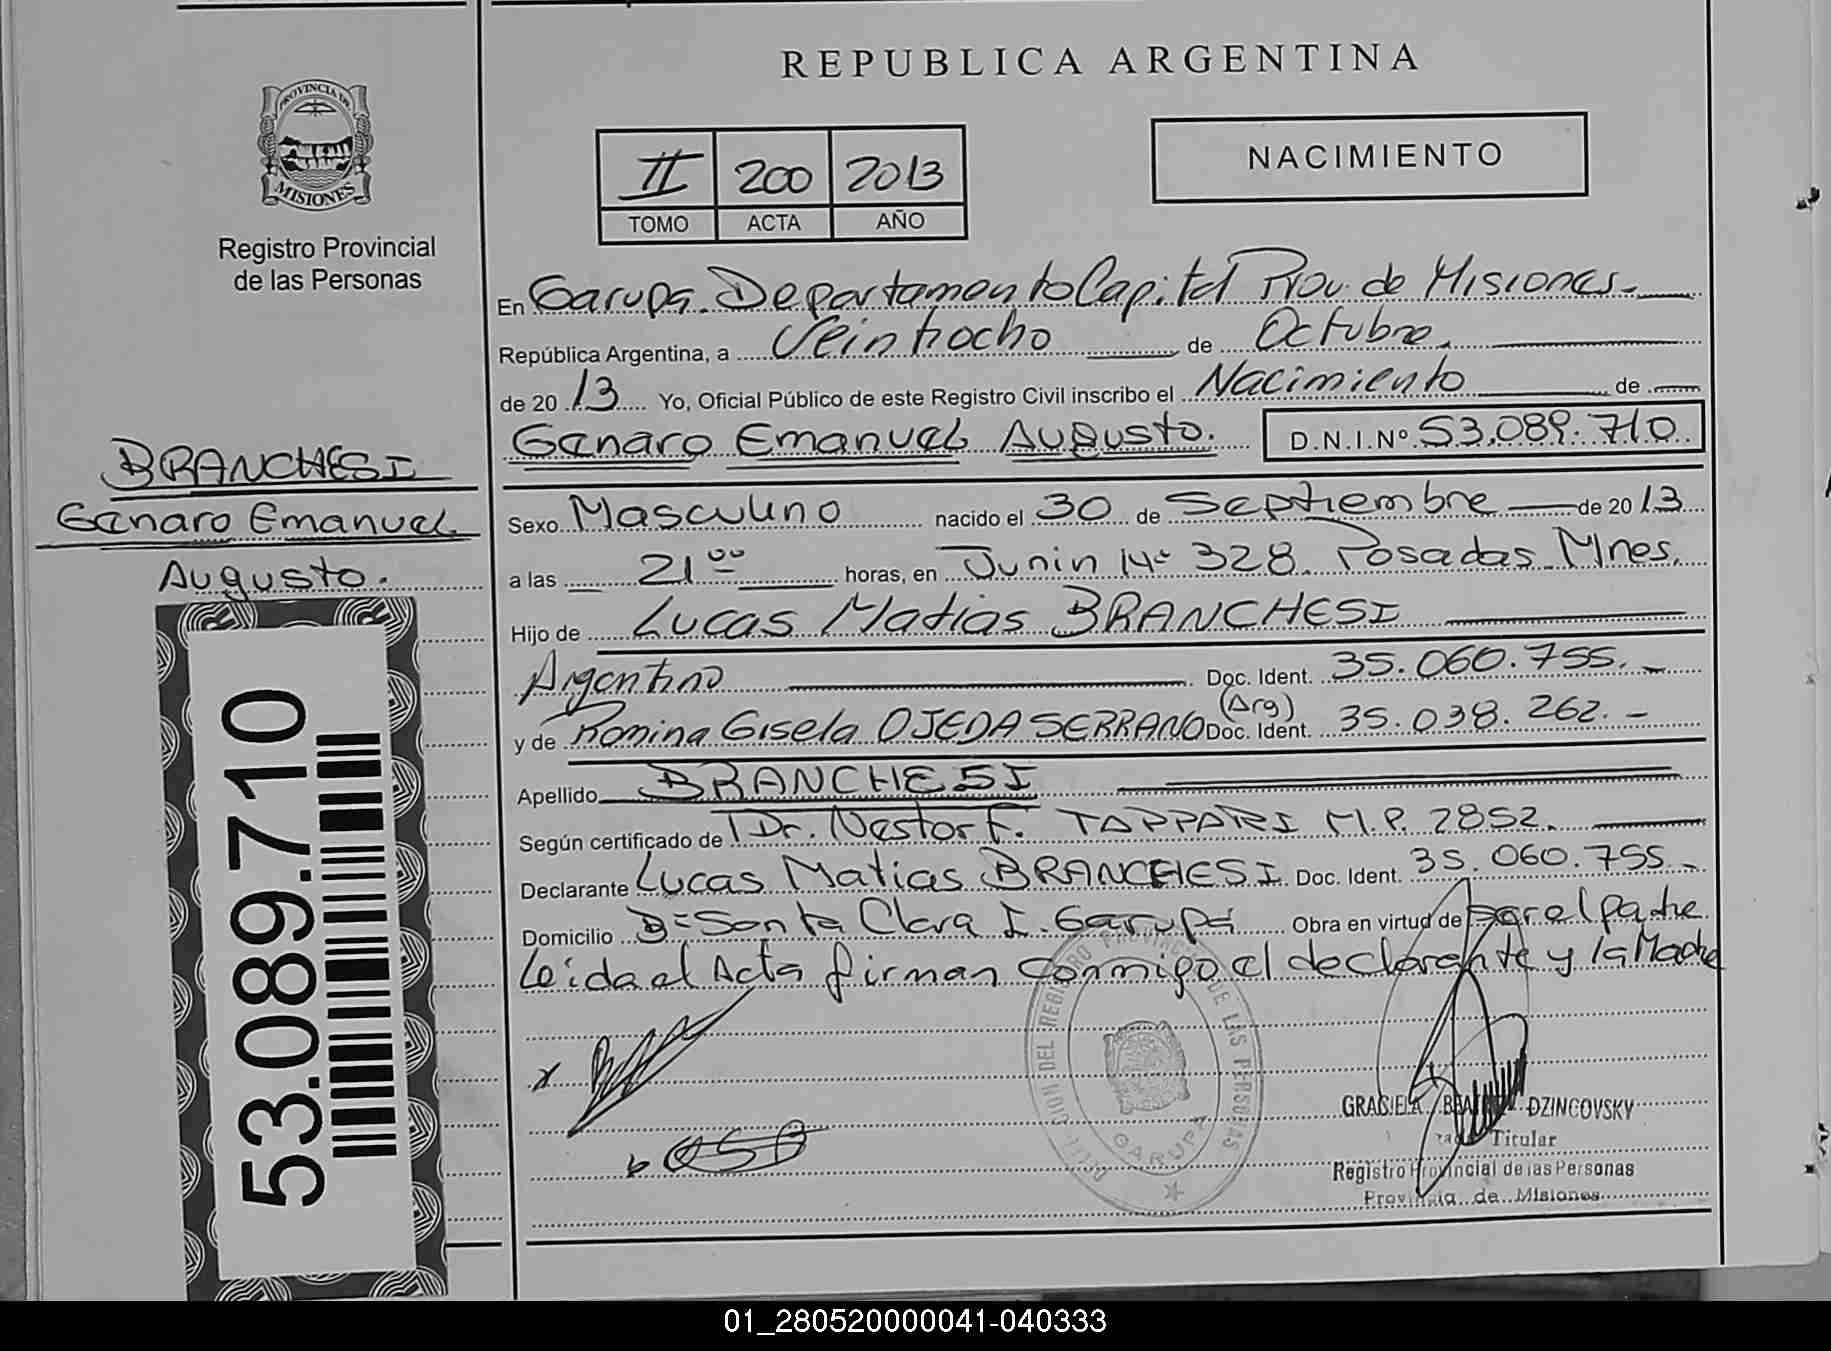 REPUBLICA ARGENTINA
PROVINCIA DE
MISIONES
Registro Provincial
de las Personas
II 200 2013
TOMO ACTA AÑO
NACIMIENTO
En Garupa. Departamento Capital Prov. de Misiones.
República Argentina, a Veintiocho de Octubre.
de 2013 Yo, Oficial Público de este Registro Civil inscribo el Nacimiento de
Genaro Emanuel Augusto. D.N.I.Nº 53.089.710
BRANCHESI
Genaro Emanuel
Augusto.
Sexo Masculino nacido el 30 de Septiembre de 2013
a las 21 00 horas, en Junin Nº 328. Posadas Mnes.
Hijo de Lucas Matias BRANCHESI
Argentino Doc. Ident. 35.060.755.
(Arg)
y de Romina Gisela OJEDA SERRANO Doc. Ident. 35.038.262.
Apellido BRANCHESI
Según certificado de Dr. Nestor F. TAPPARI M.P. 2852.
Declarante Lucas Matias BRANCHESI Doc. Ident. 35.060.755
Domicilio Bº Santa Clara I. Garupá Obra en virtud de ser el padre
Leida el Acta firman conmigo el declarante y la Madre
53.089.710
DEL REGISTRO PROVINCIAL DE LAS PERSONAS
GARUPA
GRACIELA DZINCOVSKY
Titular
Registro Provincial de las Personas
Provincia de Misiones
01_280520000041-040333